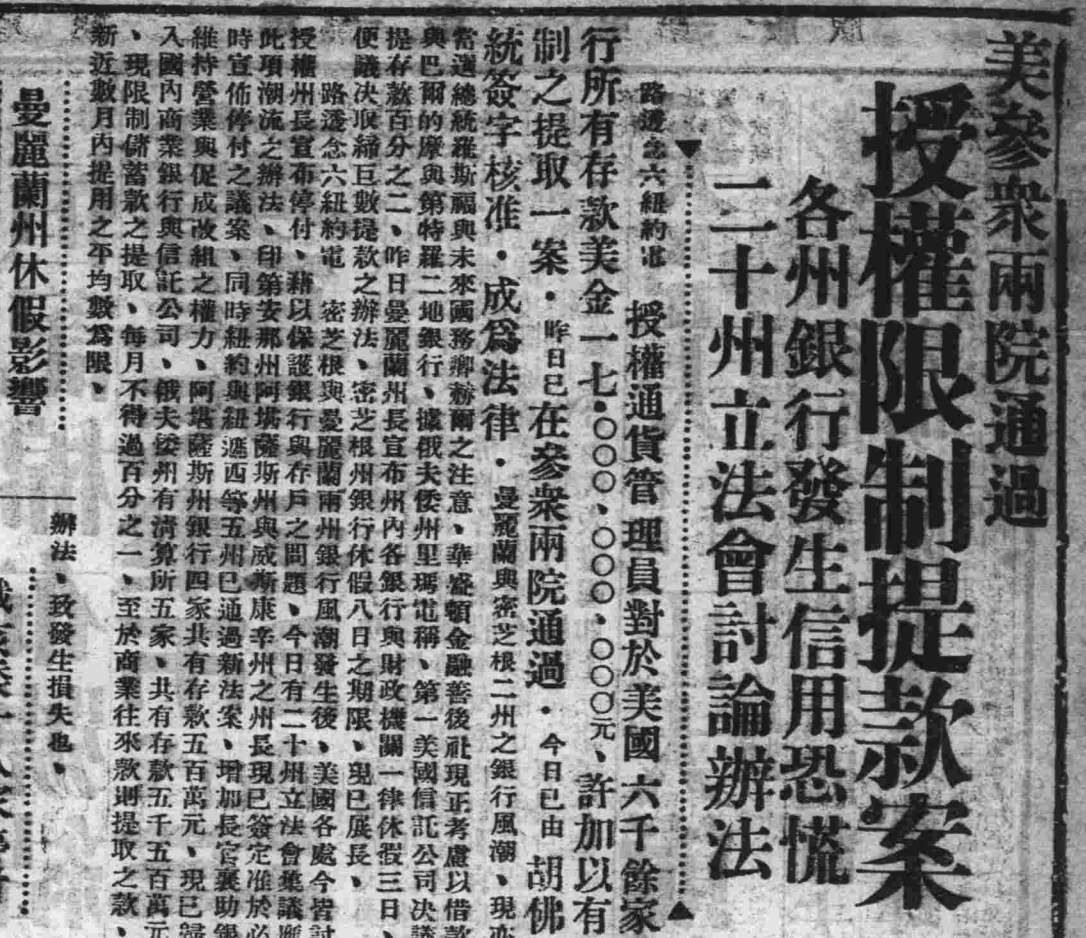 美參衆兩院通過
授權限制提款案
各州銀行發生信用恐慌
二十州立法會討論辦法
路透念六紐約電 授權通貨管理員對於美國六千餘家
行所有存款美金一七·〇〇〇、〇〇〇、〇〇〇元、許加以有
制之提取一案·昨日已在參衆兩院通過·今日已由胡佛
統簽字核准·成爲法律·曼麗蘭與密芝根二州之銀行風潮、現亦
當選總統羅斯福與未來國務卿赫爾之注意、華盛頓金融善後社現正考慮以借款
與巴爾的摩與第特羅二地銀行、據俄夫倭州里瑪電稱、第一美國信託公司決議
提存款百分之二、昨日曼麗蘭州長宣布州內各銀行與財政機關一律休假三日、
便議決取締巨數提款之辦法、密芝根州銀行休假八日之期限、現已展長、
路透念六紐約電 密芝根與曼麗蘭兩州銀行風潮發生後、美國各處今皆討
授權州長宣布停付、藉以保護銀行與存戶之問題、今日有二十州立法會集議應
此項潮流之辦法、印第安那州阿堪薩斯州與威斯康辛州之州長現已簽定准於必
時宣佈停付之議案、同時紐約與紐遮西等五州已通過新法案、增加長官襄助銀
維持營業與促成改組之權力、阿堪薩斯州銀行四家共有存款五百萬元、現已歸
入國內商業銀行與信託公司、俄夫倭州有清算所五家、共有存款五千五百萬元
、現限制儲蓄款之提取、每月不得過百分之一、至於商業往來款則提取之款、
新近數月內提用之平均數爲限、
曼麗蘭州休假影響
辦法、致發生損失也、